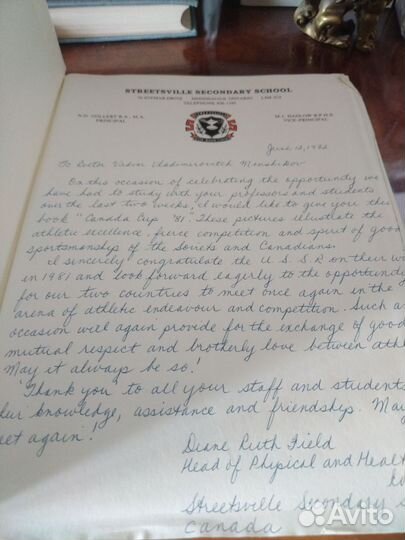 STREETSVILLE SECONDARY SCHOOL
MISSISSAUGA ONTARIO
TELEPHONE
PRINCIPAL
VICE-PRINCIPAL
June 1982
To Rector Vadim Vladimirovitch Menshikov
On this occasion of celebrating the opportunity we
have had to study with your professors and students
over the last two weeks, I would like to give you this
book "Canada Cup '81". These pictures illustrate the
athletic excellence, fierce competition and spirit of good
sportsmanship of the Soviets and Canadians.
I sincerely congratulate the U.S.S.R on their w
in 1981 and look forward eagerly to the opportunity
for our two countries to meet once again in the
arena of athletic endeavour and competition. Such an
occasion will again provide for the exchange of good
mutual respect and brotherly love between athl
May it always be so!
'Thank you' to all your staff and students
knowledge, assistance and friendship. May
eet again!
Diane Ruth Field
Head of Physical and Healt
Streetsville Secondary S
Canada
Avito